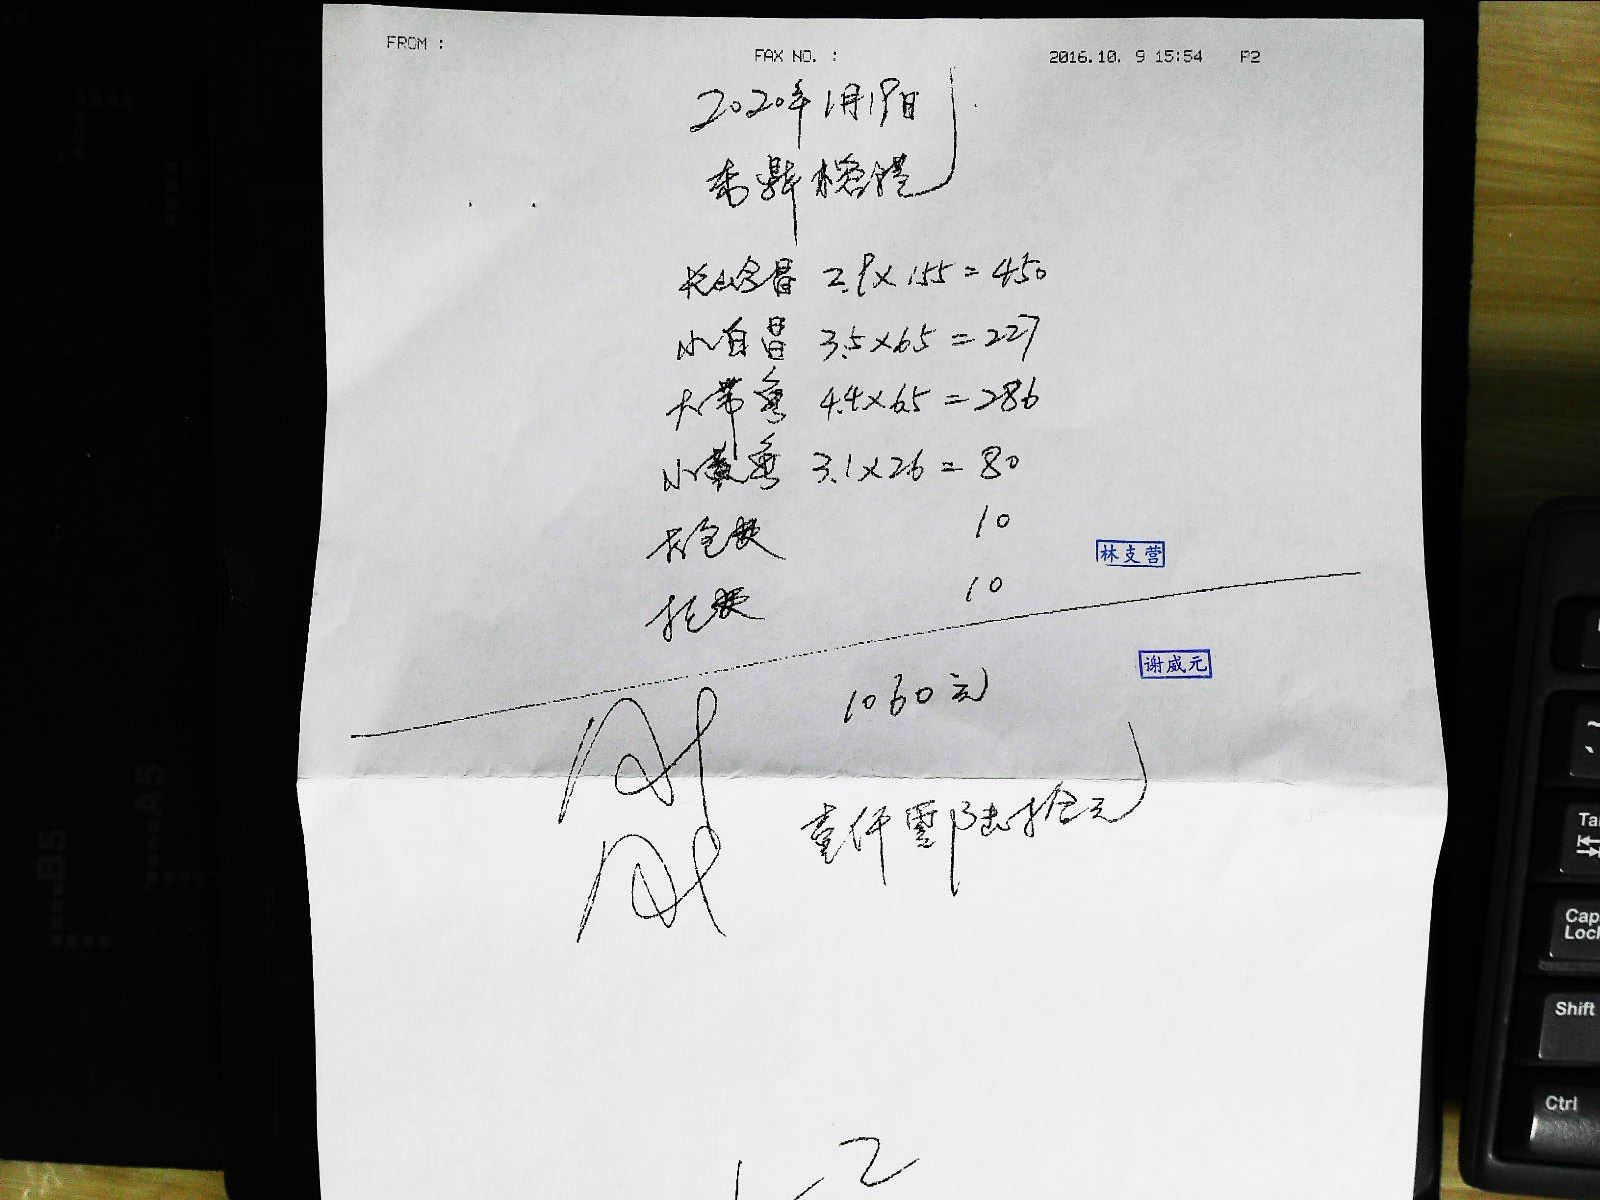 FROM :
FAX NO. :
2016.10. 9 15:54 P2
2020年1月19日
2.9×155=450
小白昌 3.5×65=227
大带鱼 4.4×65=286
小黄鱼 3.1×26=80
10
林支营
10
谢威元
1060元
壹仟零陆拾元
1-2
B5
A5
Caps Lock
Shift
Ctrl